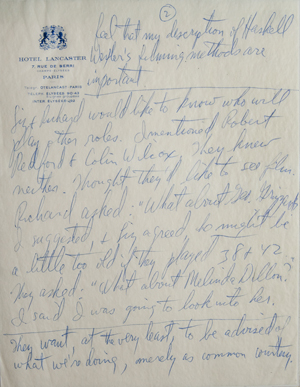 2
feel that my description of Haskell
Wexler's filming methods are
important
HOTEL LANCASTER
7 RUE DE BERRI
CHAMPS ELYSÉES
PARIS
Liz & Richard would like to know who will
play other roles. I mentioned Robert
Redford & Colin Wilcox. They knew
neither. Thought they'd like to see film.
Richard asked: "What about Geo. Grizzard?"
I suggested, & Liz agreed, he might be
a little too old if they played 38 & 42.
They asked: "What about Melinda Dillon?"
I said I was going to look into her.
They want, at the very least, to be advised of
what we're doing, merely as common courtesy.